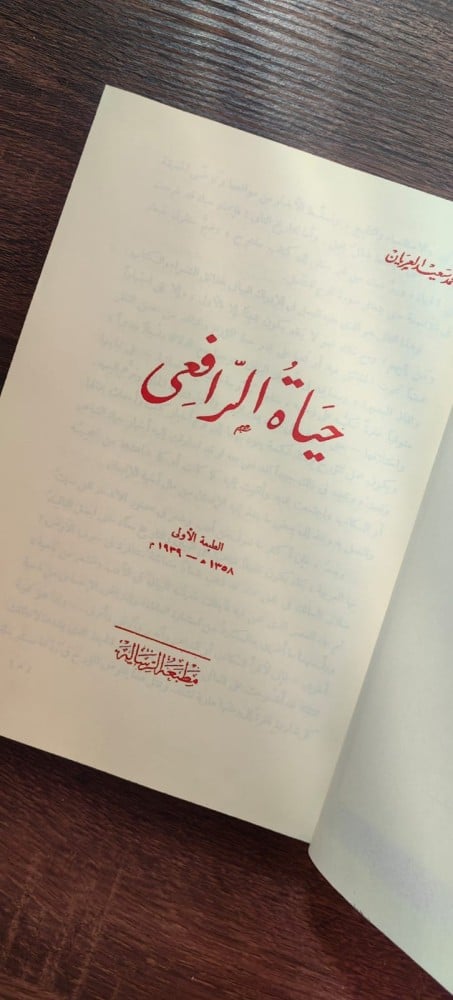 سعيد العريان
حَيَاةُ الرَّافِعِي
الطبعة الأولى
١٣٥٨ هـ — ١٩٣٩ م
مَطبَعَة الرِّسَالَة